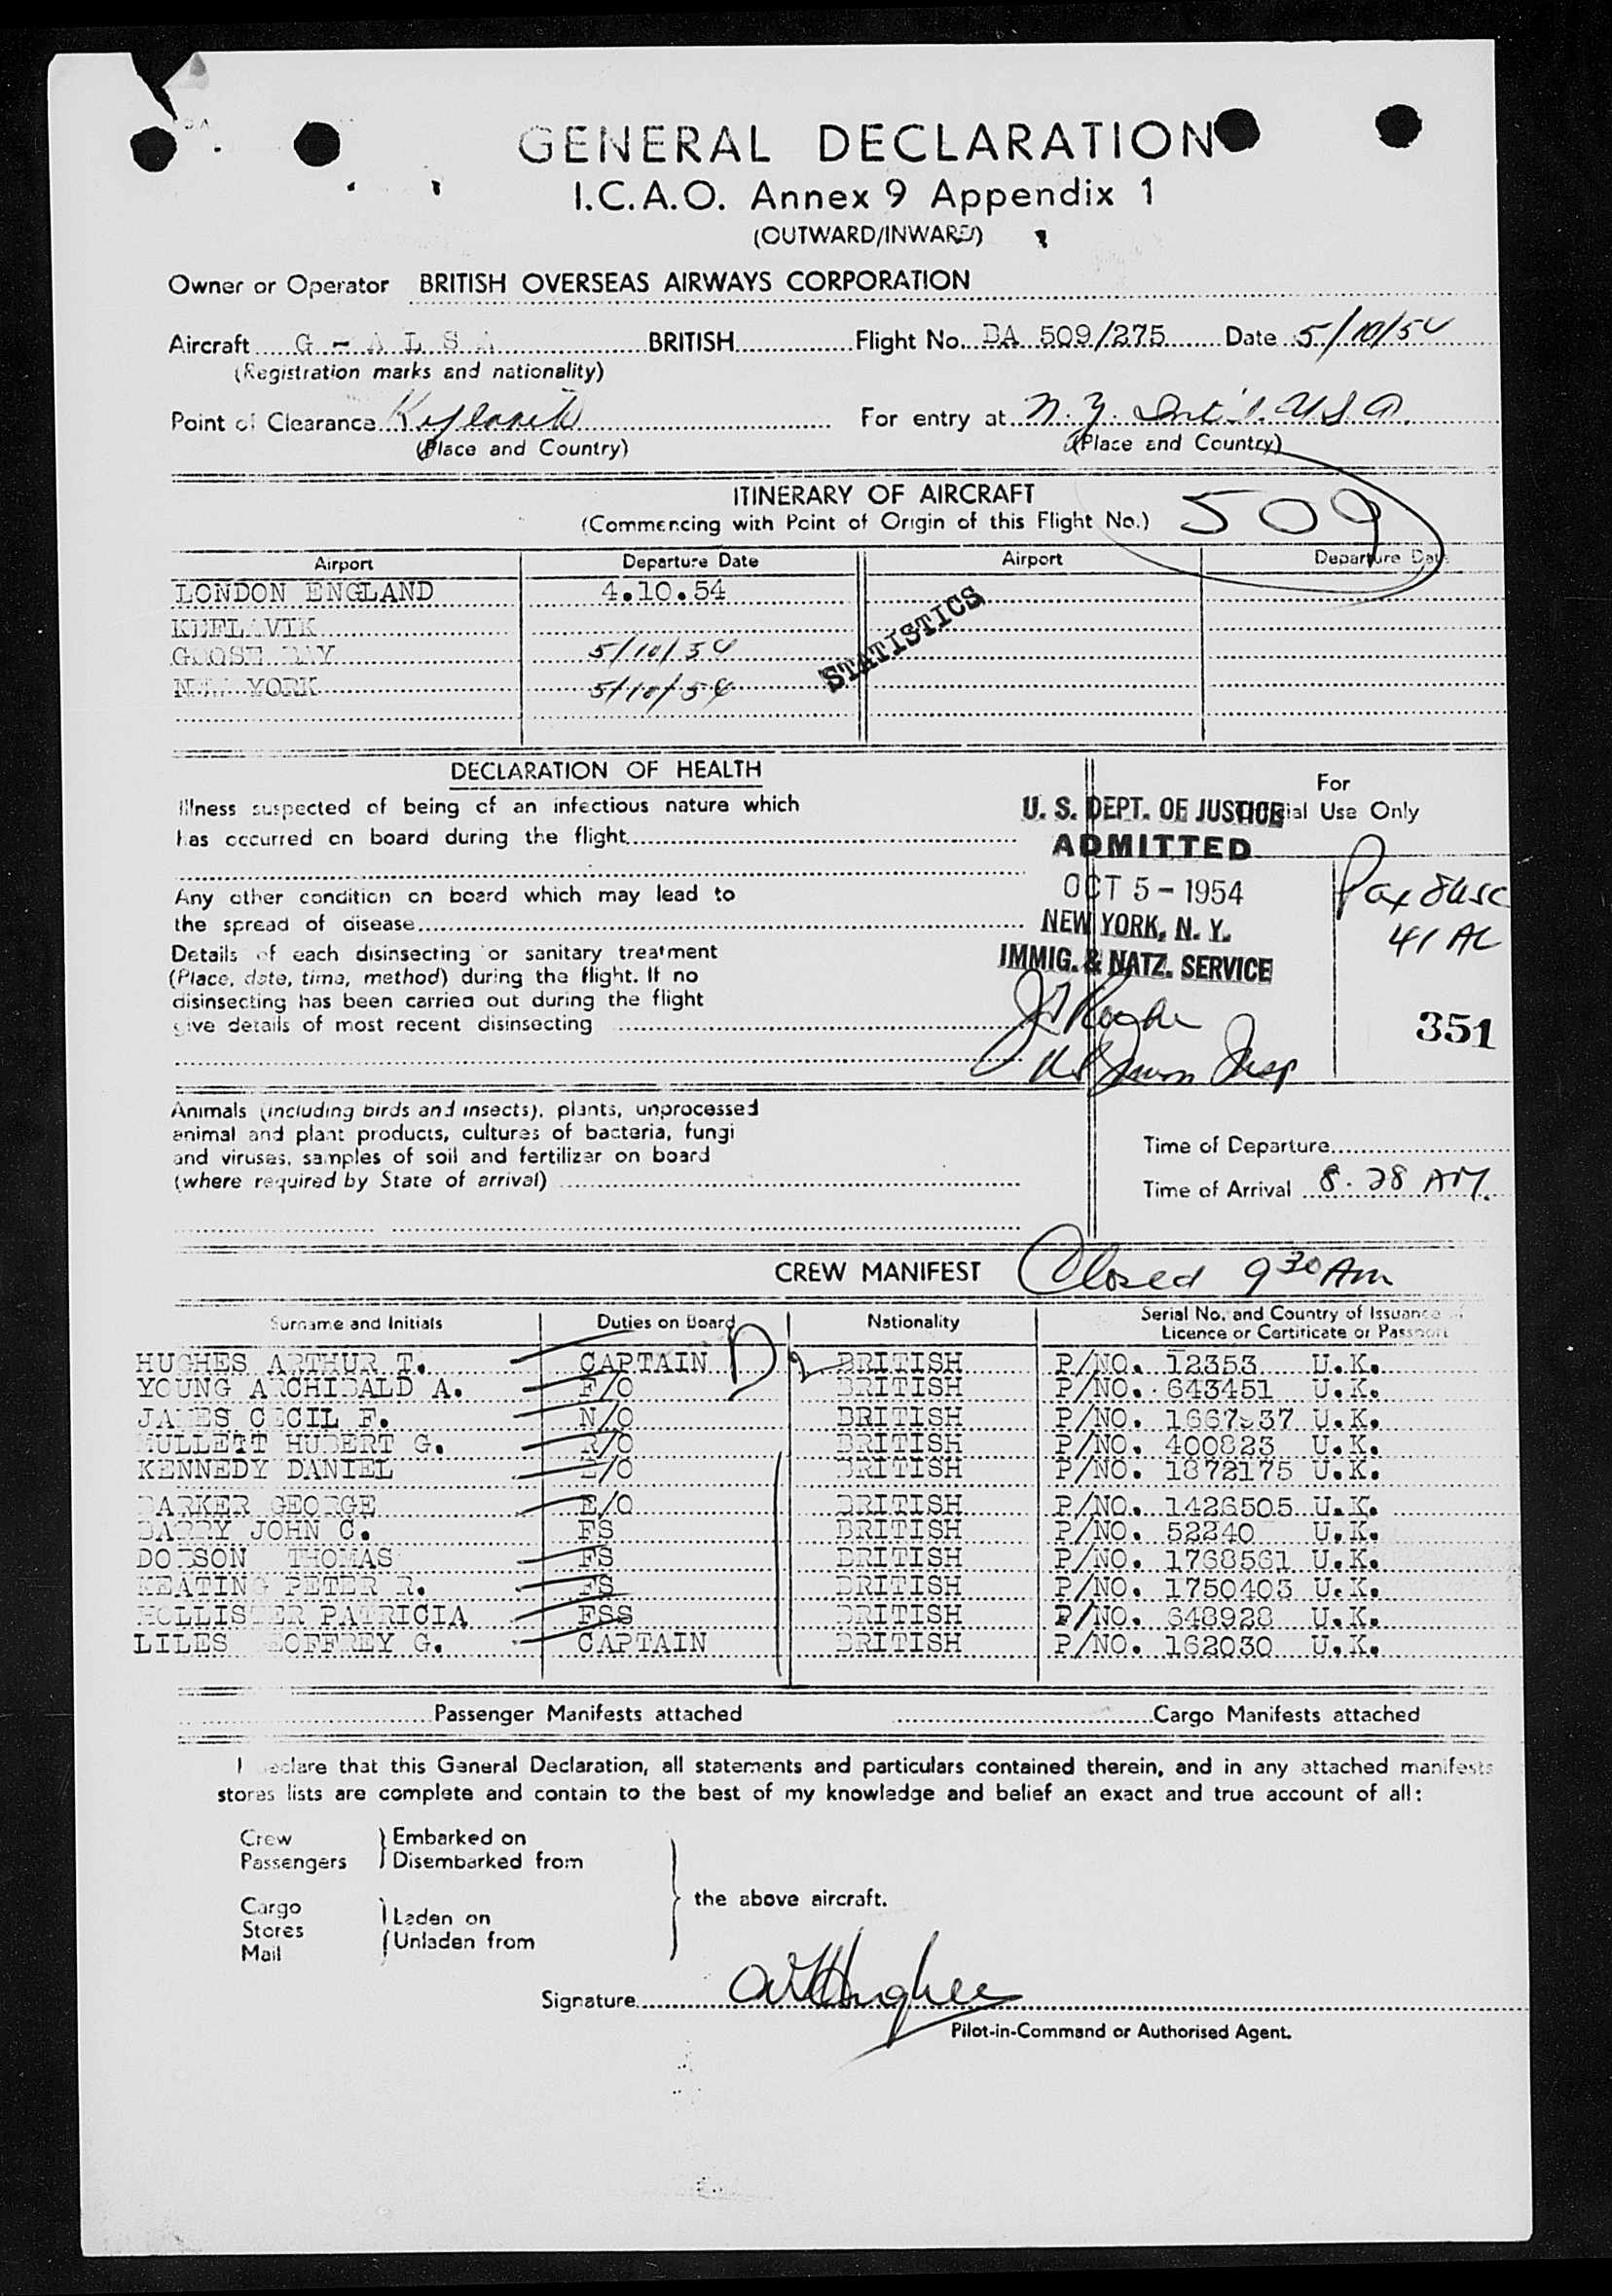 GENERAL DECLARATION
I.C.A.O. Annex 9 Appendix 1
(OUTWARD/INWARD)
Owner or Operator BRITISH OVERSEAS AIRWAYS CORPORATION
Aircraft G - A L S A BRITISH Flight No. BA 509/275 Date 5/10/54
(Registration marks and nationality)
Point of Clearance Keflavik For entry at N.Y. Int'l. U.S.A.
(Place and Country) (Place and Country)
ITINERARY OF AIRCRAFT
(Commencing with Point of Origin of this Flight No.) 509
Airport Departure Date Airport Departure Date
LONDON ENGLAND 4.10.54
KEFLAVIK
GOOSE BAY 5/10/54
NEW YORK 5/10/54
STATISTICS
DECLARATION OF HEALTH
Illness suspected of being of an infectious nature which
has occurred on board during the flight
Any other condition on board which may lead to
the spread of disease
Details of each disinsecting or sanitary treatment
(Place, date, time, method) during the flight. If no
disinsecting has been carried out during the flight
give details of most recent disinsecting
For
Official Use Only
U. S. DEPT. OF JUSTICE
ADMITTED
OCT 5 - 1954
NEW YORK, N. Y.
IMMIG. & NATZ. SERVICE
Insp
Pax
41 AC
351
Animals (including birds and insects), plants, unprocessed
animal and plant products, cultures of bacteria, fungi
and viruses, samples of soil and fertilizer on board
(where required by State of arrival)
Time of Departure
Time of Arrival 8.28 AM.
CREW MANIFEST Closed 9 30 Am
Surname and Initials Duties on Board Nationality Serial No. and Country of Issuance of
Licence or Certificate or Passport
HUGHES ARTHUR T. CAPTAIN D2 BRITISH P/NO. 12353 U.K.
YOUNG ARCHIBALD A. F/O BRITISH P/NO. 643451 U.K.
JAMES CECIL F. N/O BRITISH P/NO. 1667937 U.K.
MULLETT HUBERT G. R/O BRITISH P/NO. 400823 U.K.
KENNEDY DANIEL E/O BRITISH P/NO. 1872175 U.K.
BARKER GEORGE E/O BRITISH P/NO. 1426505 U.K.
BARRY JOHN C. FS BRITISH P/NO. 52240 U.K.
DOBSON THOMAS FS BRITISH P/NO. 1768561 U.K.
KEATING PETER R. FS BRITISH P/NO. 1750403 U.K.
HOLLISTER PATRICIA FSS BRITISH P/NO. 648928 U.K.
LILES GEOFFREY G. CAPTAIN BRITISH P/NO. 162030 U.K.
Passenger Manifests attached Cargo Manifests attached
I declare that this General Declaration, all statements and particulars contained therein, and in any attached manifests
stores lists are complete and contain to the best of my knowledge and belief an exact and true account of all:
Crew Embarked on
Passengers Disembarked from
the above aircraft.
Cargo
Stores Laden on
Mail Unladen from
Signature ATHughes
Pilot-in-Command or Authorised Agent.